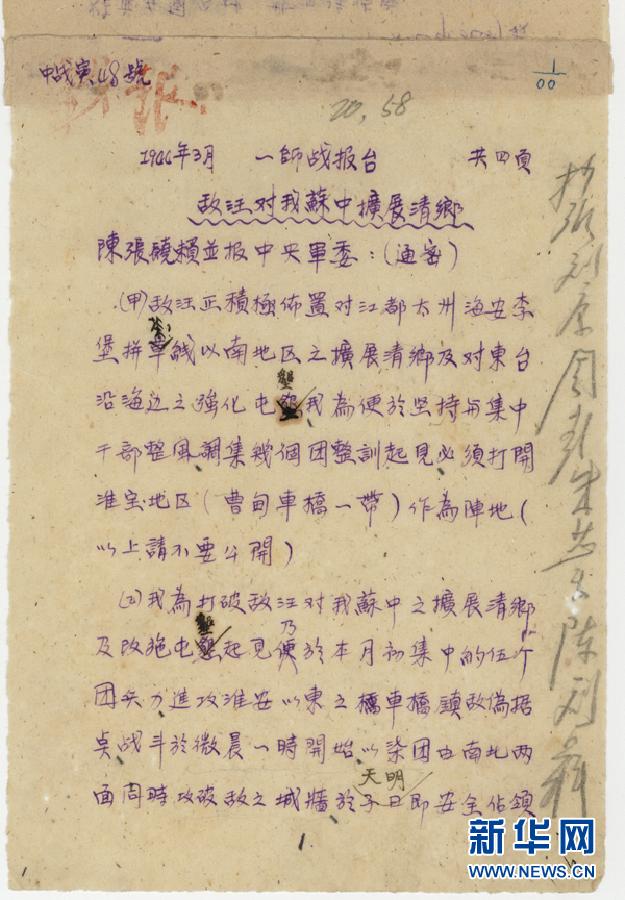 中战寅48號
战报
1
00
20,58
194 年3月 一師战报台 共四頁
敌汪对我蘇中擴展清鄉
陳張饒賴並报中央軍委:(通密)
(甲)敌汪正積極佈置对江都太州海安李
堡拼 線以南地区之擴展清鄉及对東台
沿海边之強化屯墾我為便於坚持与集中
干部整風調集幾個团整訓起見必须打開
淮宝地区(曹甸車橋一帶)作為陣地(
以上請不要公開)
(乙)我為打破敌汪对我蘇中之擴展清鄉
及改施屯墾起見乃便於本月初集中的伍个
团兵力進攻淮安以東之橋車橋鎮敌偽据
奌战斗於微晨一時開始以 团由南北兩
面同時攻破敌之城牆於天明 即安全佔領
1
抄 刘 康 周 彭 朱 陈 刘
新华网
WWW.NEWS.CN